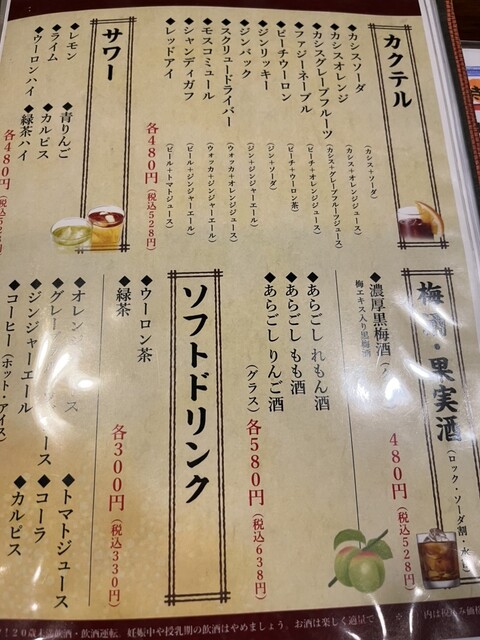 カクテル
◆カシスソーダ（カシス＋ソーダ）
◆カシスオレンジ（カシス＋オレンジジュース）
◆カシスグレープフルーツ（カシス＋グレープフルーツジュース）
◆ファジーネーブル（ピーチ＋オレンジジュース）
◆ピーチウーロン（ピーチ＋ウーロン茶）
◆ジンリッキー（ジン＋ソーダ）
◆ジンバック（ジン＋ジンジャーエール）
◆スクリュードライバー（ウォッカ＋オレンジジュース）
◆モスコミュール（ウォッカ＋ジンジャーエール）
◆シャンディガフ（ビール＋ジンジャーエール）
◆レッドアイ（ビール＋トマトジュース）
各480円（税込528円）
サワー
◆レモン
◆ライム
◆ウーロンハイ
◆青りんご
◆カルピス
◆緑茶ハイ
各480円（税込528円）
梅酒・果実酒
（ロック・ソーダ割・水
◆濃厚黒梅酒
梅エキス入り黒梅酒
480円（税込528円）
◆あらごし れもん酒
◆あらごし もも酒
◆あらごし りんご酒
（グラス）各580円（税込638円）
ソフトドリンク
◆ウーロン茶
◆緑茶
各300円（税込330円）
◆オレンジ ス
◆グレープ ュース
◆ジンジャーエール
◆コーヒー（ホット・アイス）
◆トマトジュース
◆コーラ
◆カルピス
20歳未満飲酒・飲酒運転、妊娠中や授乳期の飲酒はやめましょう。お酒は楽しく適量で
内は税込み価格